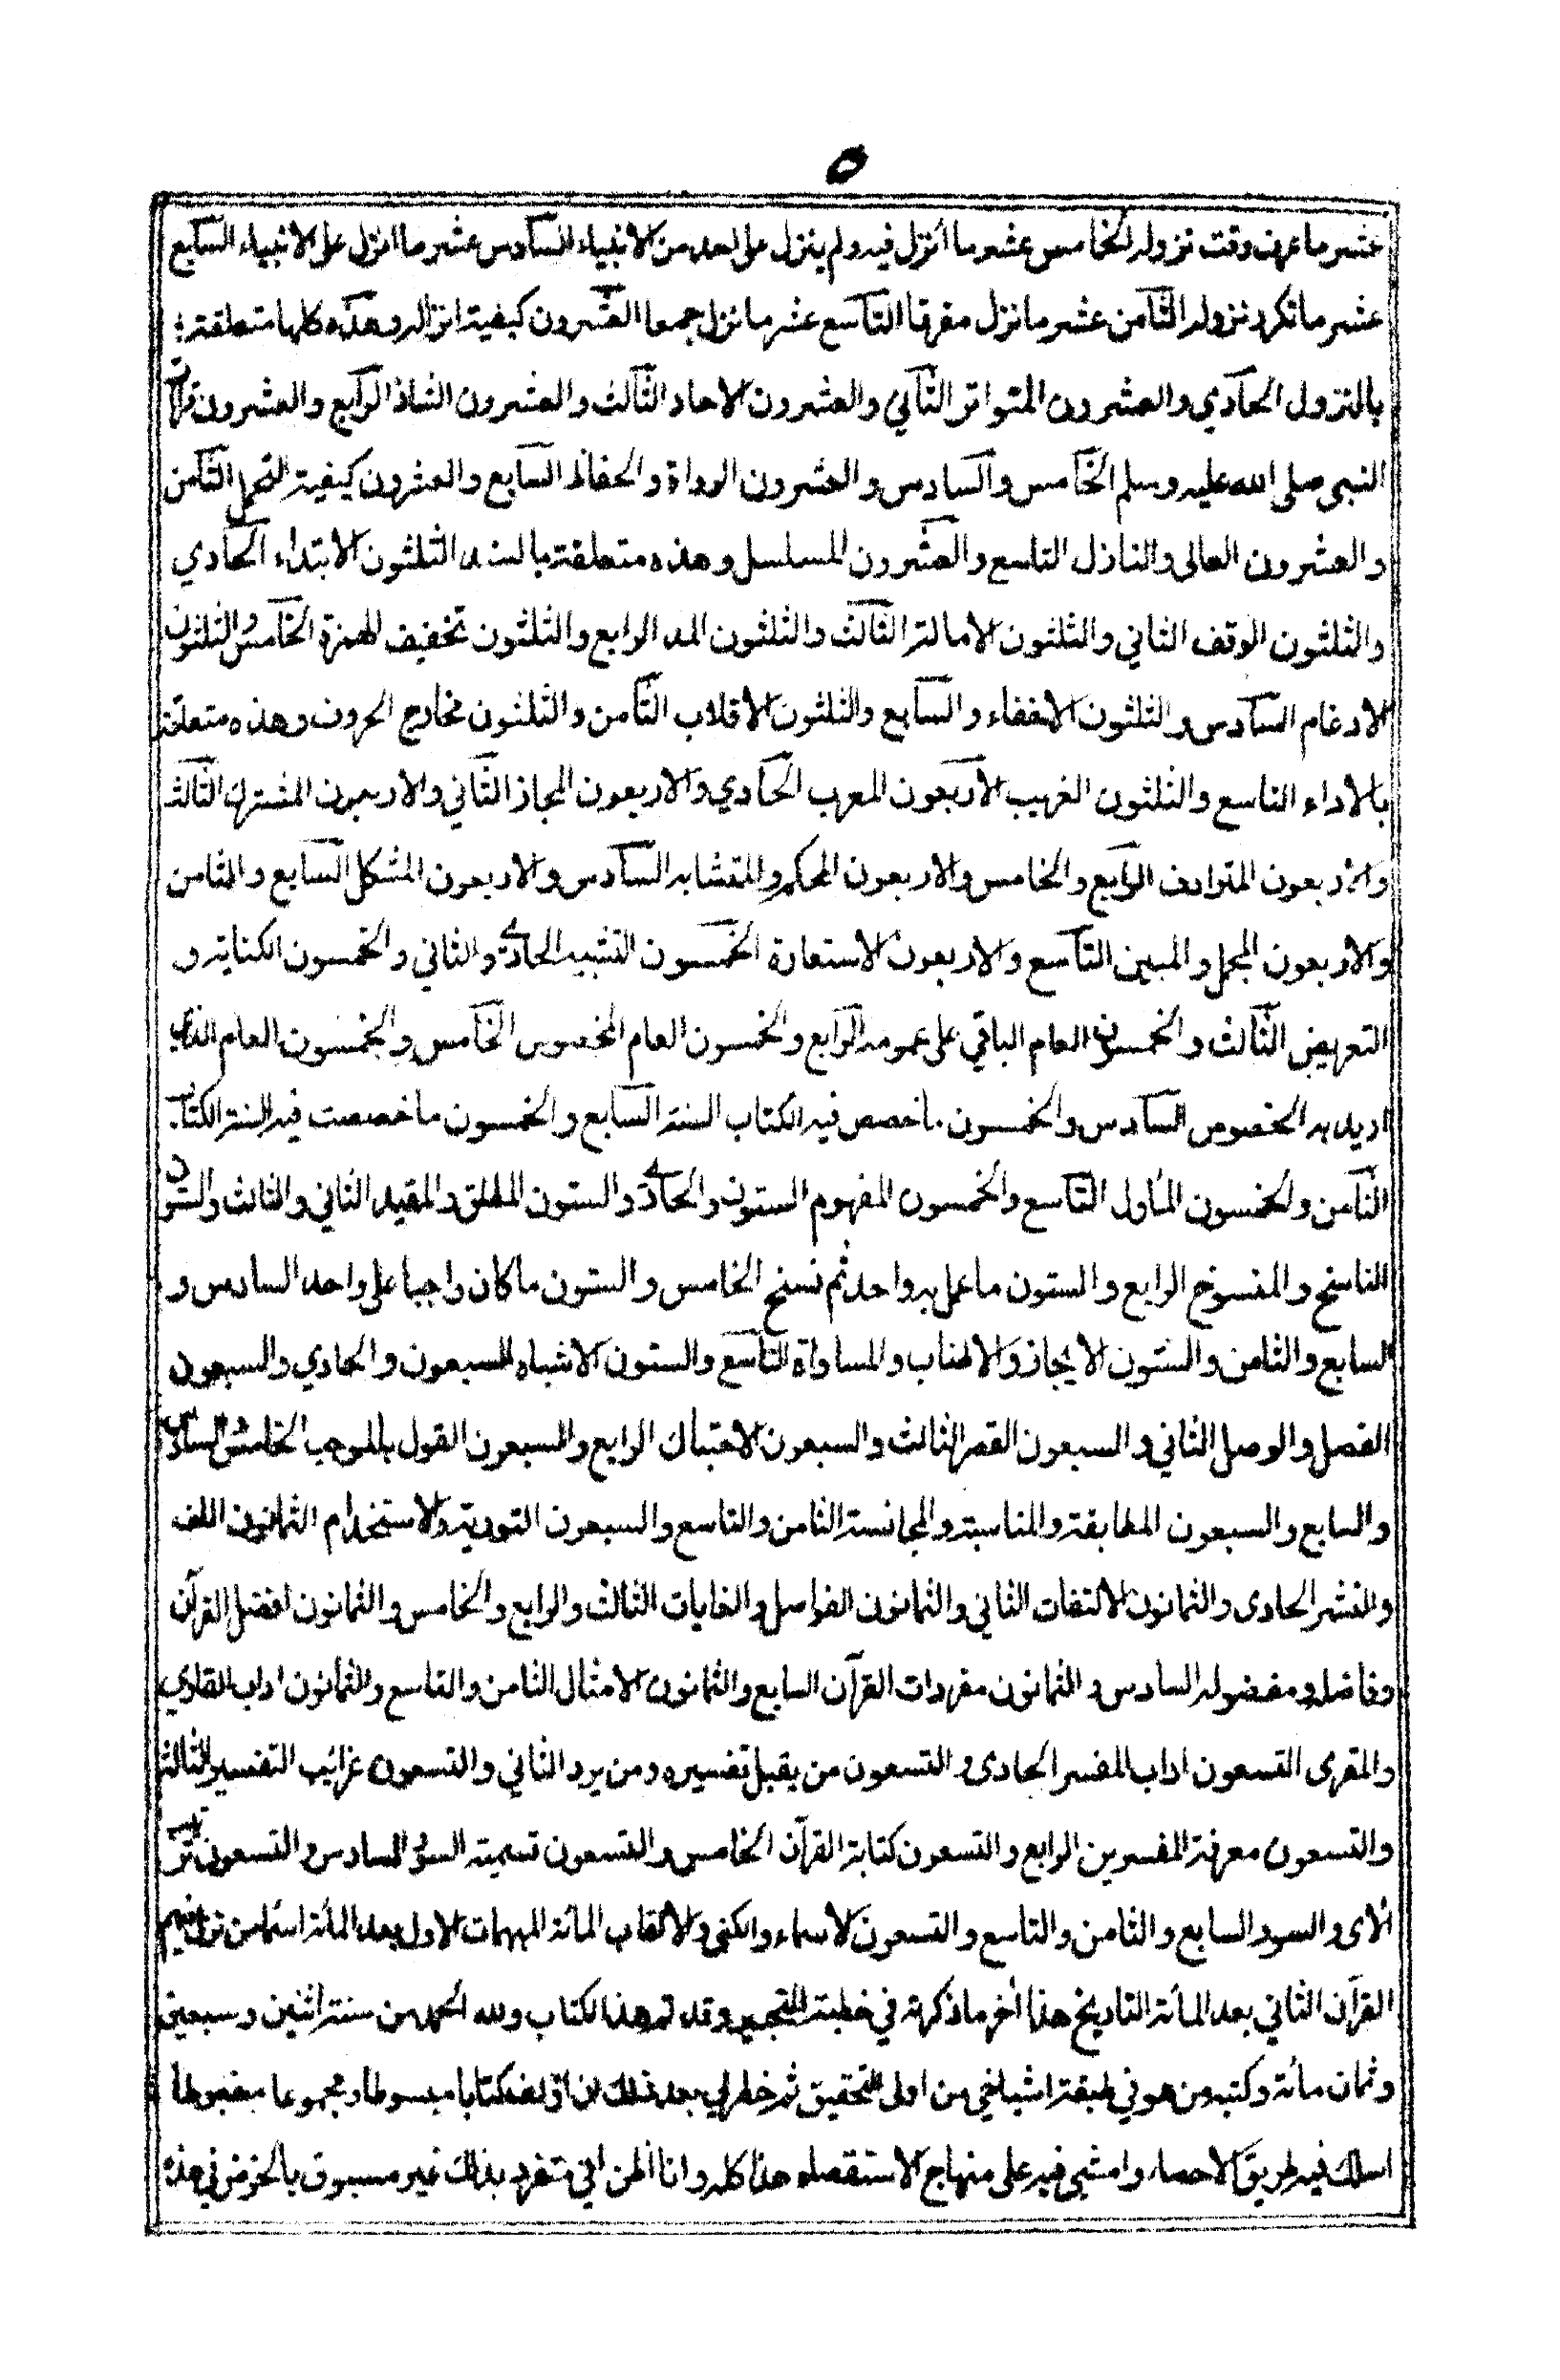 ٥
عشر ما عرف وقت نزوله الخامس عشر ما أنزل فيه ولم ينزل على احد من الانبياء السادس عشر ما انزل على الانبياء السابع
عشر ما تكرر نزوله الثامن عشر ما نزل مفرقا التاسع عشر ما نزل جمعا العشرون كيفية انزاله وهذه كلها متعلقة
بالنزول الحادي والعشرون المتواتر الثاني والعشرون الاحاد الثالث والعشرون الشاذ الرابع والعشرون قرآت
النبي صلى الله عليه وسلم الخامس والسادس والعشرون الرواة والحفاظ السابع والعشرون كيفية التحمل الثامن
والعشرون العالى والنازل التاسع والعشرون المسلسل وهذه متعلقة بالسند الثلثون الابتداء الحادي
والثلثون الوقف الثاني والثلثون الامالة الثالث والثلثون المد الرابع والثلثون تخفيف الهمزة الخامس والثلثون
الادغام السادس والثلثون الاخفاء والسابع والثلثون الاقلاب الثامن والثلثون مخارج الحروف وهذه متعلقة
بالاداء التاسع والثلثون الغريب الاربعون المعرب الحادي والاربعون المجاز الثاني والاربعون المشترك الثالث
والاربعون المترادف الرابع والخامس والاربعون المحكم والمتشابه السادس والاربعون المشكل السابع والثامن
والاربعون المجمل والمبين التاسع والاربعون الاستعارة الخمسون التشبيه الحادي والثاني والخمسون الكناية و
التعريض الثالث والخمسون العام الباقي على عمومه الرابع والخمسون العام المخصوص الخامس والخمسون العام الذي
اريد به الخصوص السادس والخمسون ما خصص فيه الكتاب السنة السابع والخمسون ما خصصت فيه السنة الكتاب
الثامن والخمسون المأول التاسع والخمسون المفهوم الستون والحادي والستون المطلق والمقيد الثاني والثالث والستون
الناسخ والمنسوخ الرابع والستون ما عمل به واحد ثم نسخ الخامس والستون ما كان واجبا على واحد السادس و
السابع والثامن والستون الايجاز والاطناب والمساواة التاسع والستون الاشباه السبعون والحادي والسبعون
الفصل والوصل الثاني والسبعون القصر الثالث والسبعون الاحتباك الرابع والسبعون القول بالموجب الخامس والسادس
والسابع والسبعون المطابقة والمناسبة والمجانسة الثامن والتاسع والسبعون التورية والاستخدام الثمانون اللف
والنشر الحادى والثمانون الالتفات الثاني والثمانون الفواصل والغايات الثالث والرابع والخامس والثمانون افضل القرآن
وفاضله ومفضوله السادس والثمانون مفردات القرآن السابع والثمانون الامثال الثامن والتاسع والثمانون اداب القاري
والمقرى التسعون اداب المفسر الحادى والتسعون من يقبل تفسيره ومن يرد الثاني والتسعون غرائب التفسير الثالث
والتسعون معرفة المفسرين الرابع والتسعون كتابة القرآن الخامس والتسعون تسمية السور السادس والتسعون ترتيب
الآى والسور السابع والثامن والتاسع والتسعون الاسماء والكنى والالقاب المائة المبهمات الاول بعد المائة اسماء من نزل فيهم
القرآن الثاني بعد المائة التاريخ هذا أخر ما ذكرته في خطبة التحبير وقد تم هذا الكتاب ولله الحمد من سنة اثنين وسبعين
وثمان مائة وكتبه من هو في طبقة اشياخي من اولى التحقيق ثم خطر لي بعد ذلك ان اؤلف كتابا مبسوطا ومجموعا مضبوطا
اسلك فيه طريق الاحصاء وامشي فيه على منهاج الاستقصاء هذا كله وانا اظن اني متفرد بذلك غير مسبوق بالخوض في هذه